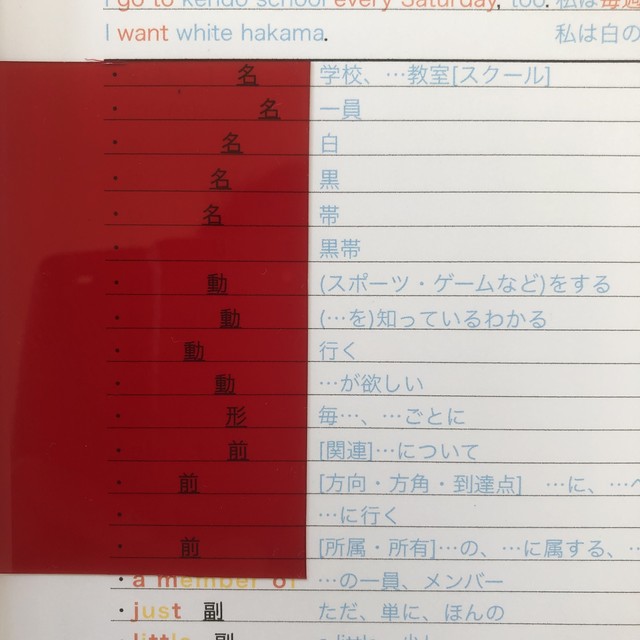 I go to kendo school every Saturday, too. 私は毎週
I want white hakama. 私は白の
・ 名 学校、…教室[スクール]
・ 名 一員
・ 名 白
・ 名 黒
・ 名 帯
・ 黒帯
・ 動 (スポーツ・ゲームなど)をする
・ 動 (…を)知っているわかる
・ 動 行く
・ 動 …が欲しい
・ 形 毎…、…ごとに
・ 前 [関連]…について
・ 前 [方向・方角・到達点] …に、…へ
・ …に行く
・ 前 [所属・所有]…の、…に属する、…
・a member of …の一員、メンバー
・just 副 ただ、単に、ほんの
・little 副